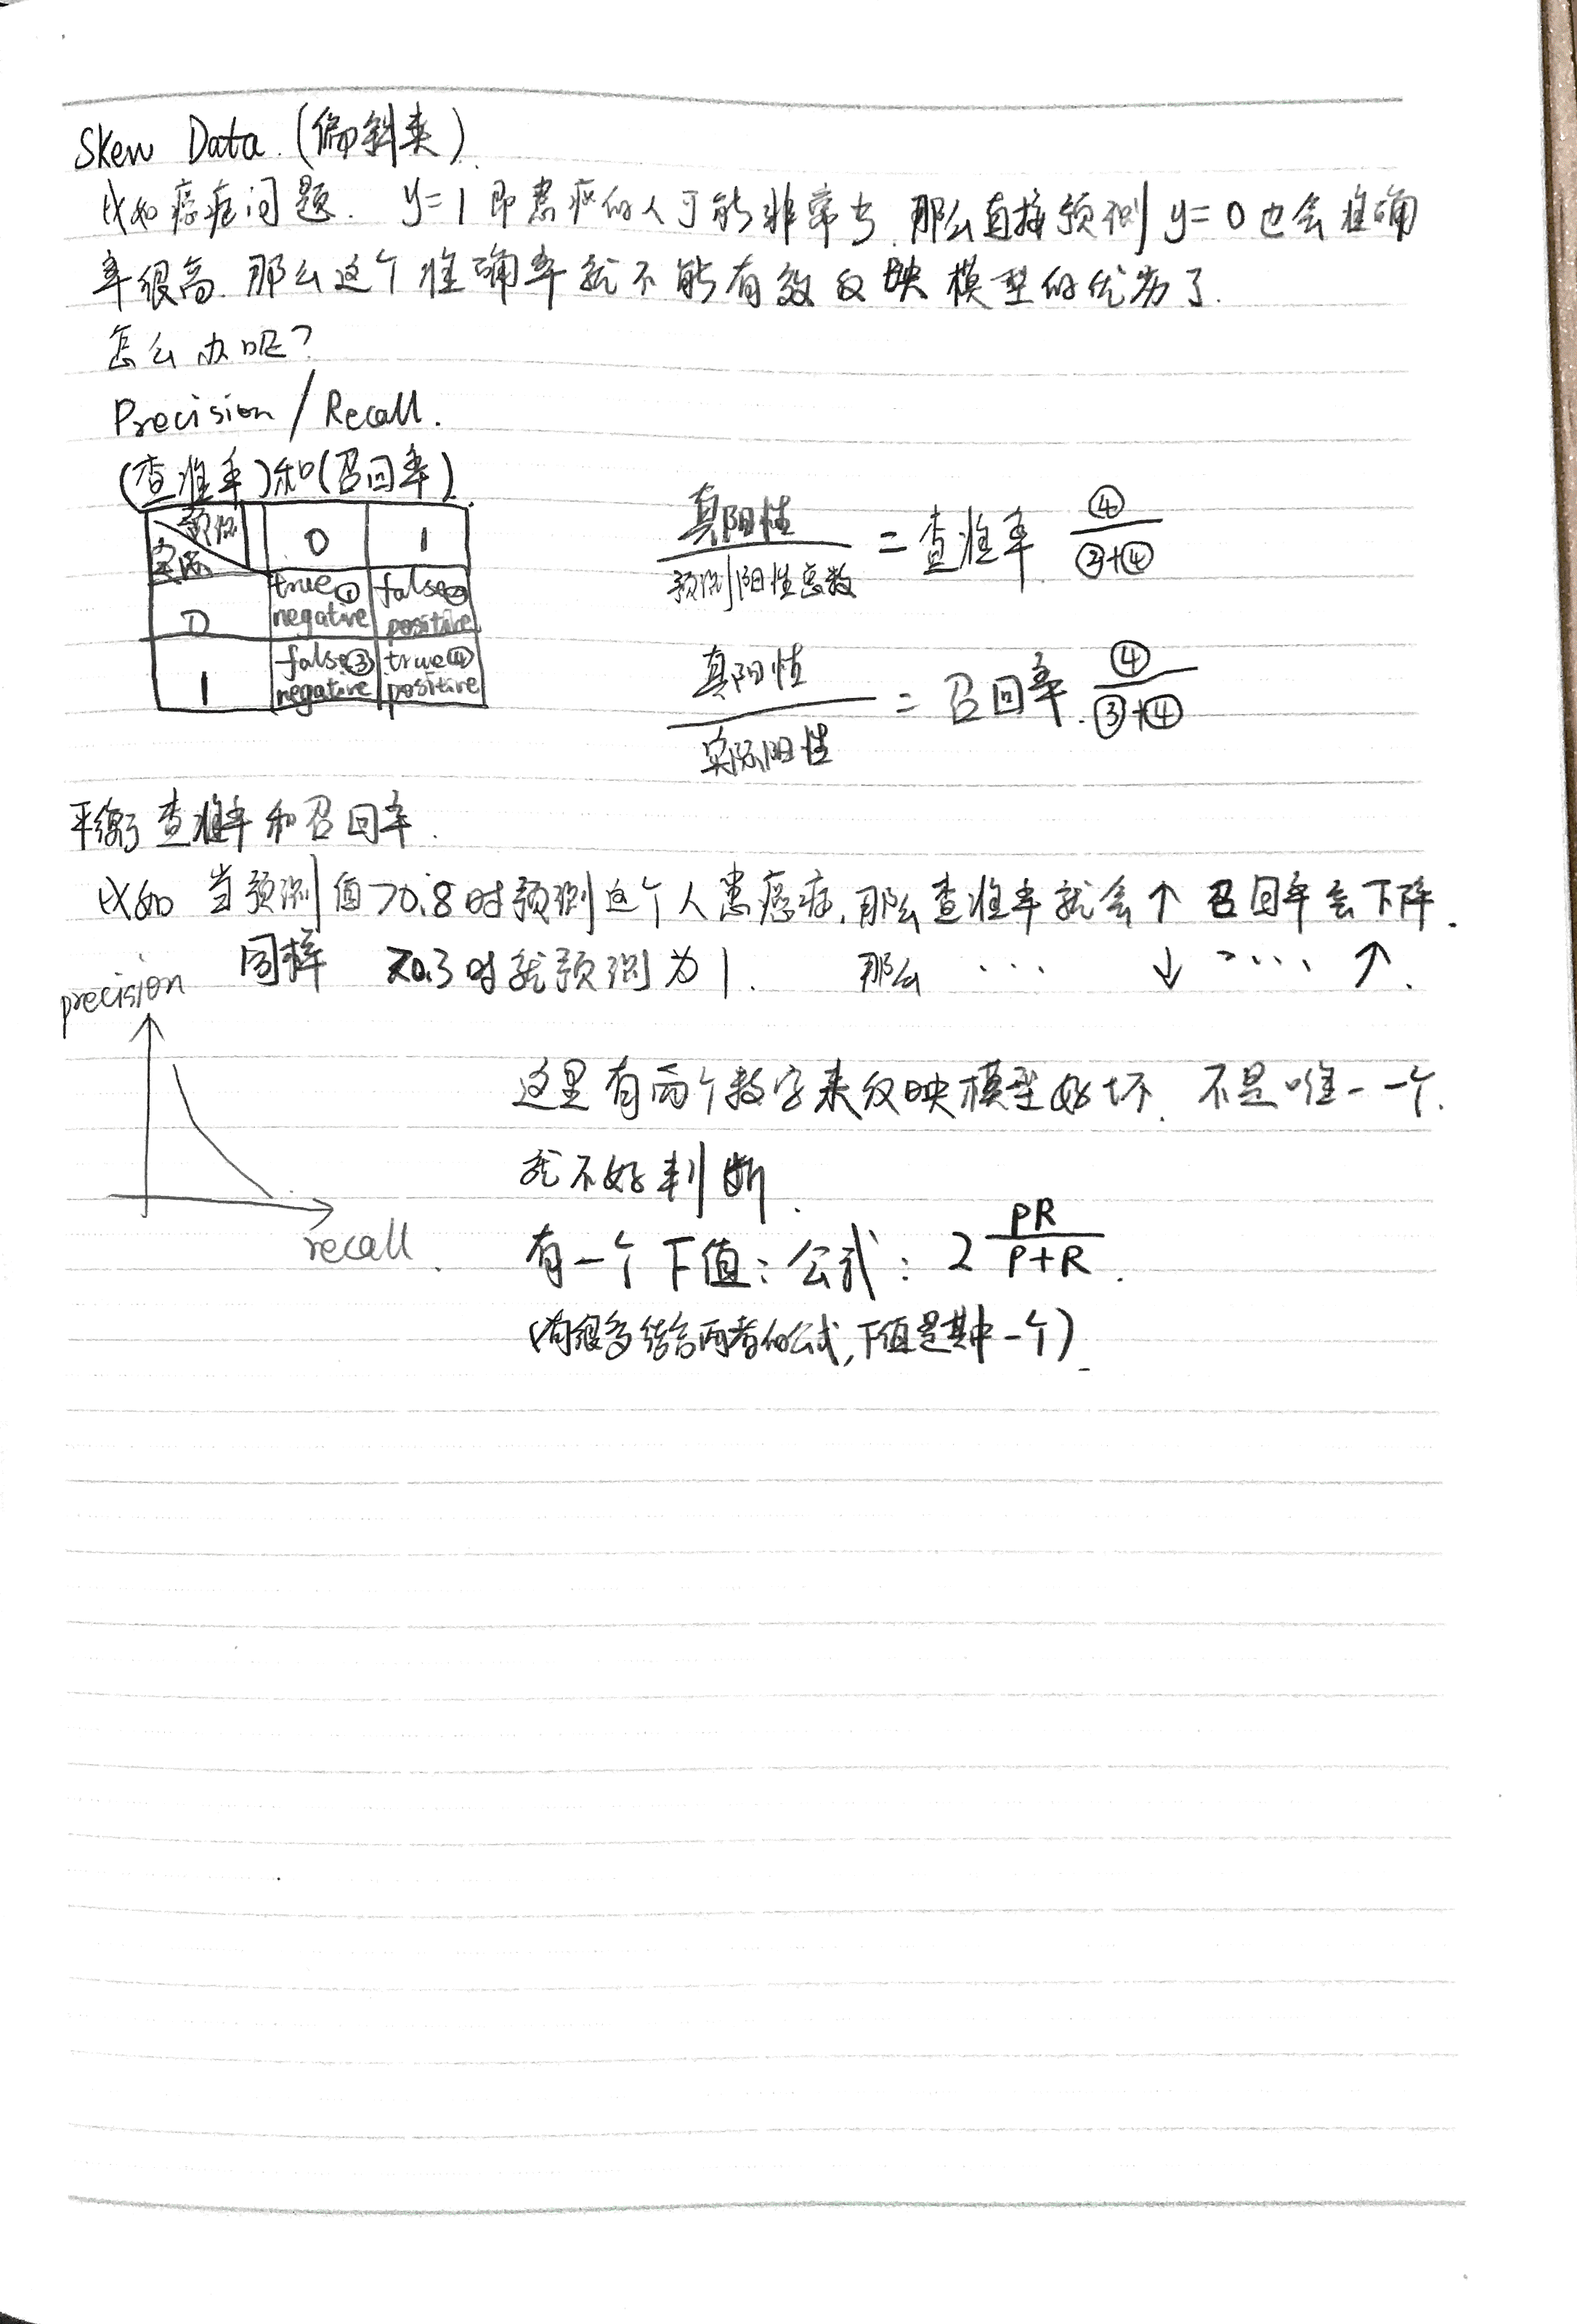 Skew Data.(偏斜类).
比如癌症问题. y=1即患癌的人可能非常少.那么直接预测y=0也会准确
率很高.那么这个准确率就不能有效反映模型的优劣了.
怎么办呢?
Precision / Recall.
(查准率)和(召回率).
预测 0 1
实际
0 true① negative false② positive
1 false③ negative true④ positive
真阳性/预测阳性总数 = 查准率. ④/(③+④)
真阳性/实际阳性 = 召回率. ④/(③+④)
平衡查准率和召回率.
比如 当预测值>0.8时预测这个人患癌症,那么查准率就会↑ 召回率会下降.
同样 >0.3时就预测为1. 那么 ... ↓ .... ↑.
precision
recall.
这里有两个数字来反映模型好坏. 不是唯一一个.
就不好判断.
有一个F值:公式: 2 PR/(P+R).
(有很多结合两者的公式,F值是其中一个).